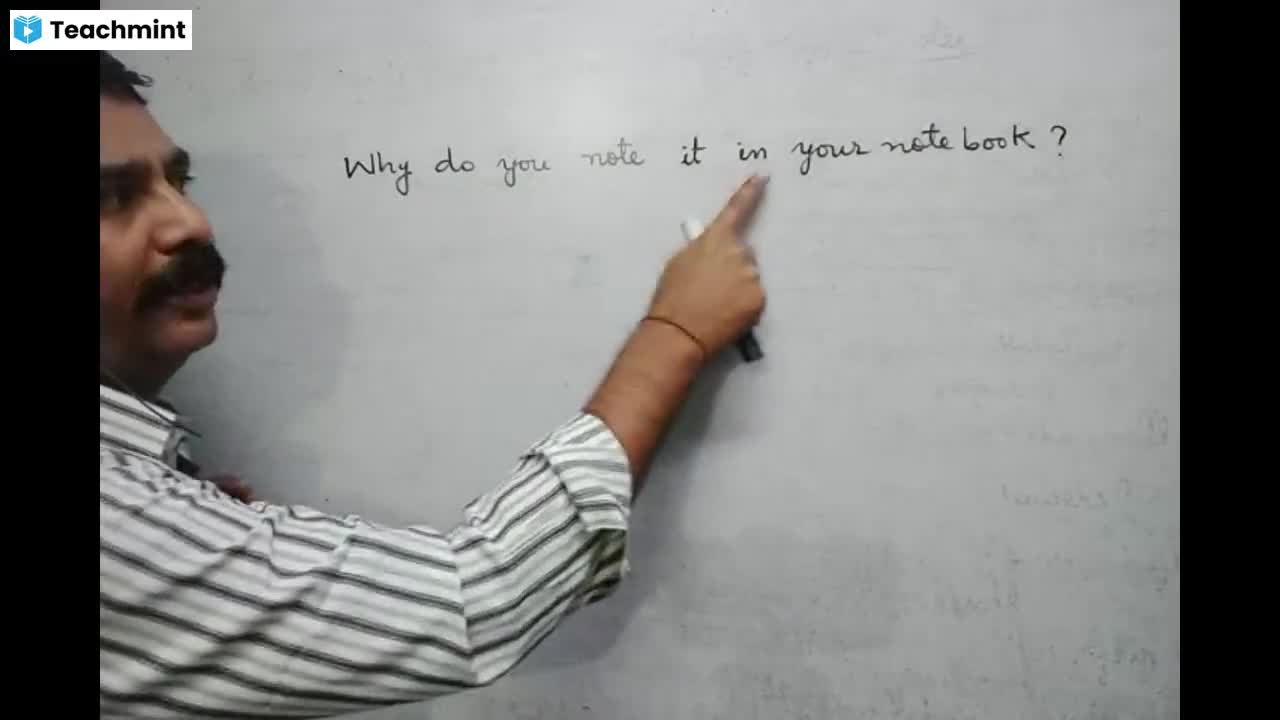 Teachmint
Why do you note it in your note book ?